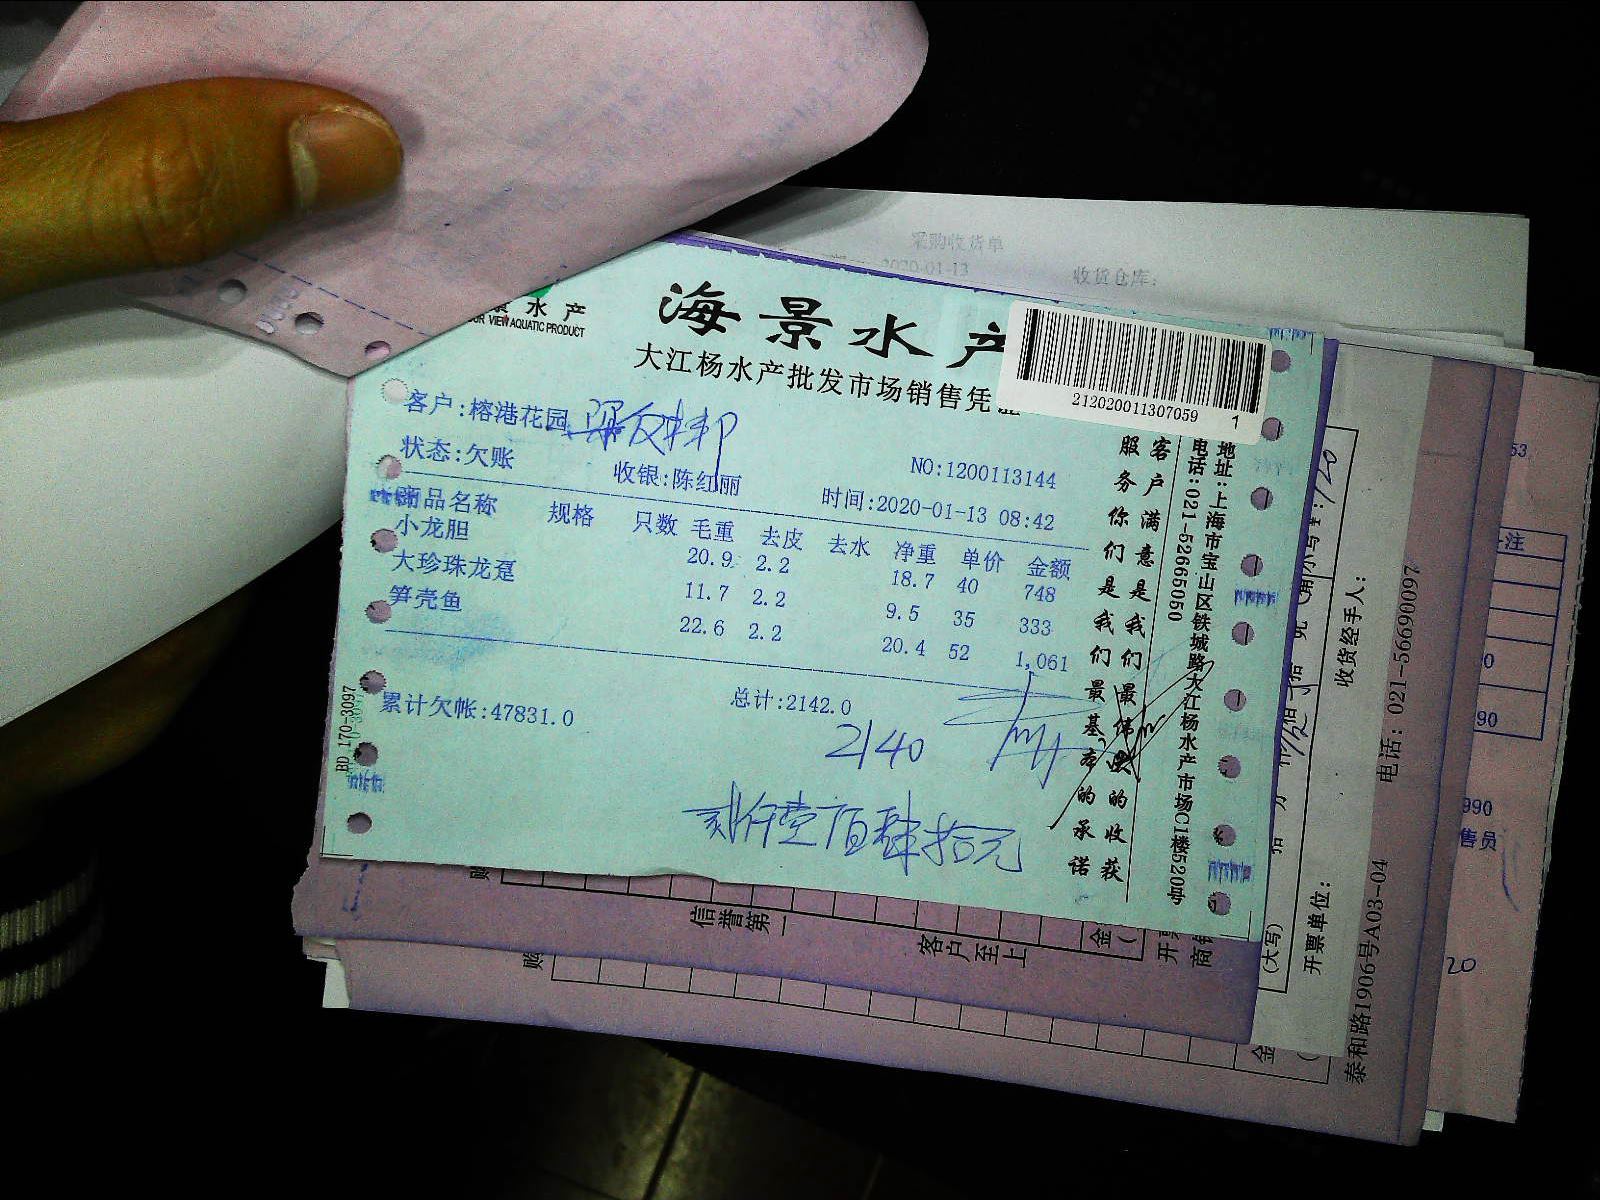 采购收货单
2020-01-13
收货仓库:
景水产
OUR VIEW AQUATIC PRODUCT
海景水产
大江杨水产批发市场销售凭证
212020011307059
1
客户:榕港花园
状态:欠账
收银:陈红丽
NO:1200113144
时间:2020-01-13 08:42
商品名称 规格 只数 毛重 去皮 去水 净重 单价 金额
小龙胆 20.9 2.2 18.7 40 748
大珍珠龙趸 11.7 2.2 9.5 35 333
笋壳鱼 22.6 2.2 20.4 52 1,061
累计欠帐:47831.0
总计:2142.0
2140
贰仟壹佰肆拾元
BD 170-3097
客户满意是我们最伟大的收获
服务你们是我们最基本的承诺
地址:上海市宝山区铁城路大江杨水产市场C1楼520号
电话:021-52665050
信誉第一
客户至上
收货经手人:
开票单位:
(大写)
电话: 021-56690097
泰和路1906号A03-04
990
售员
20